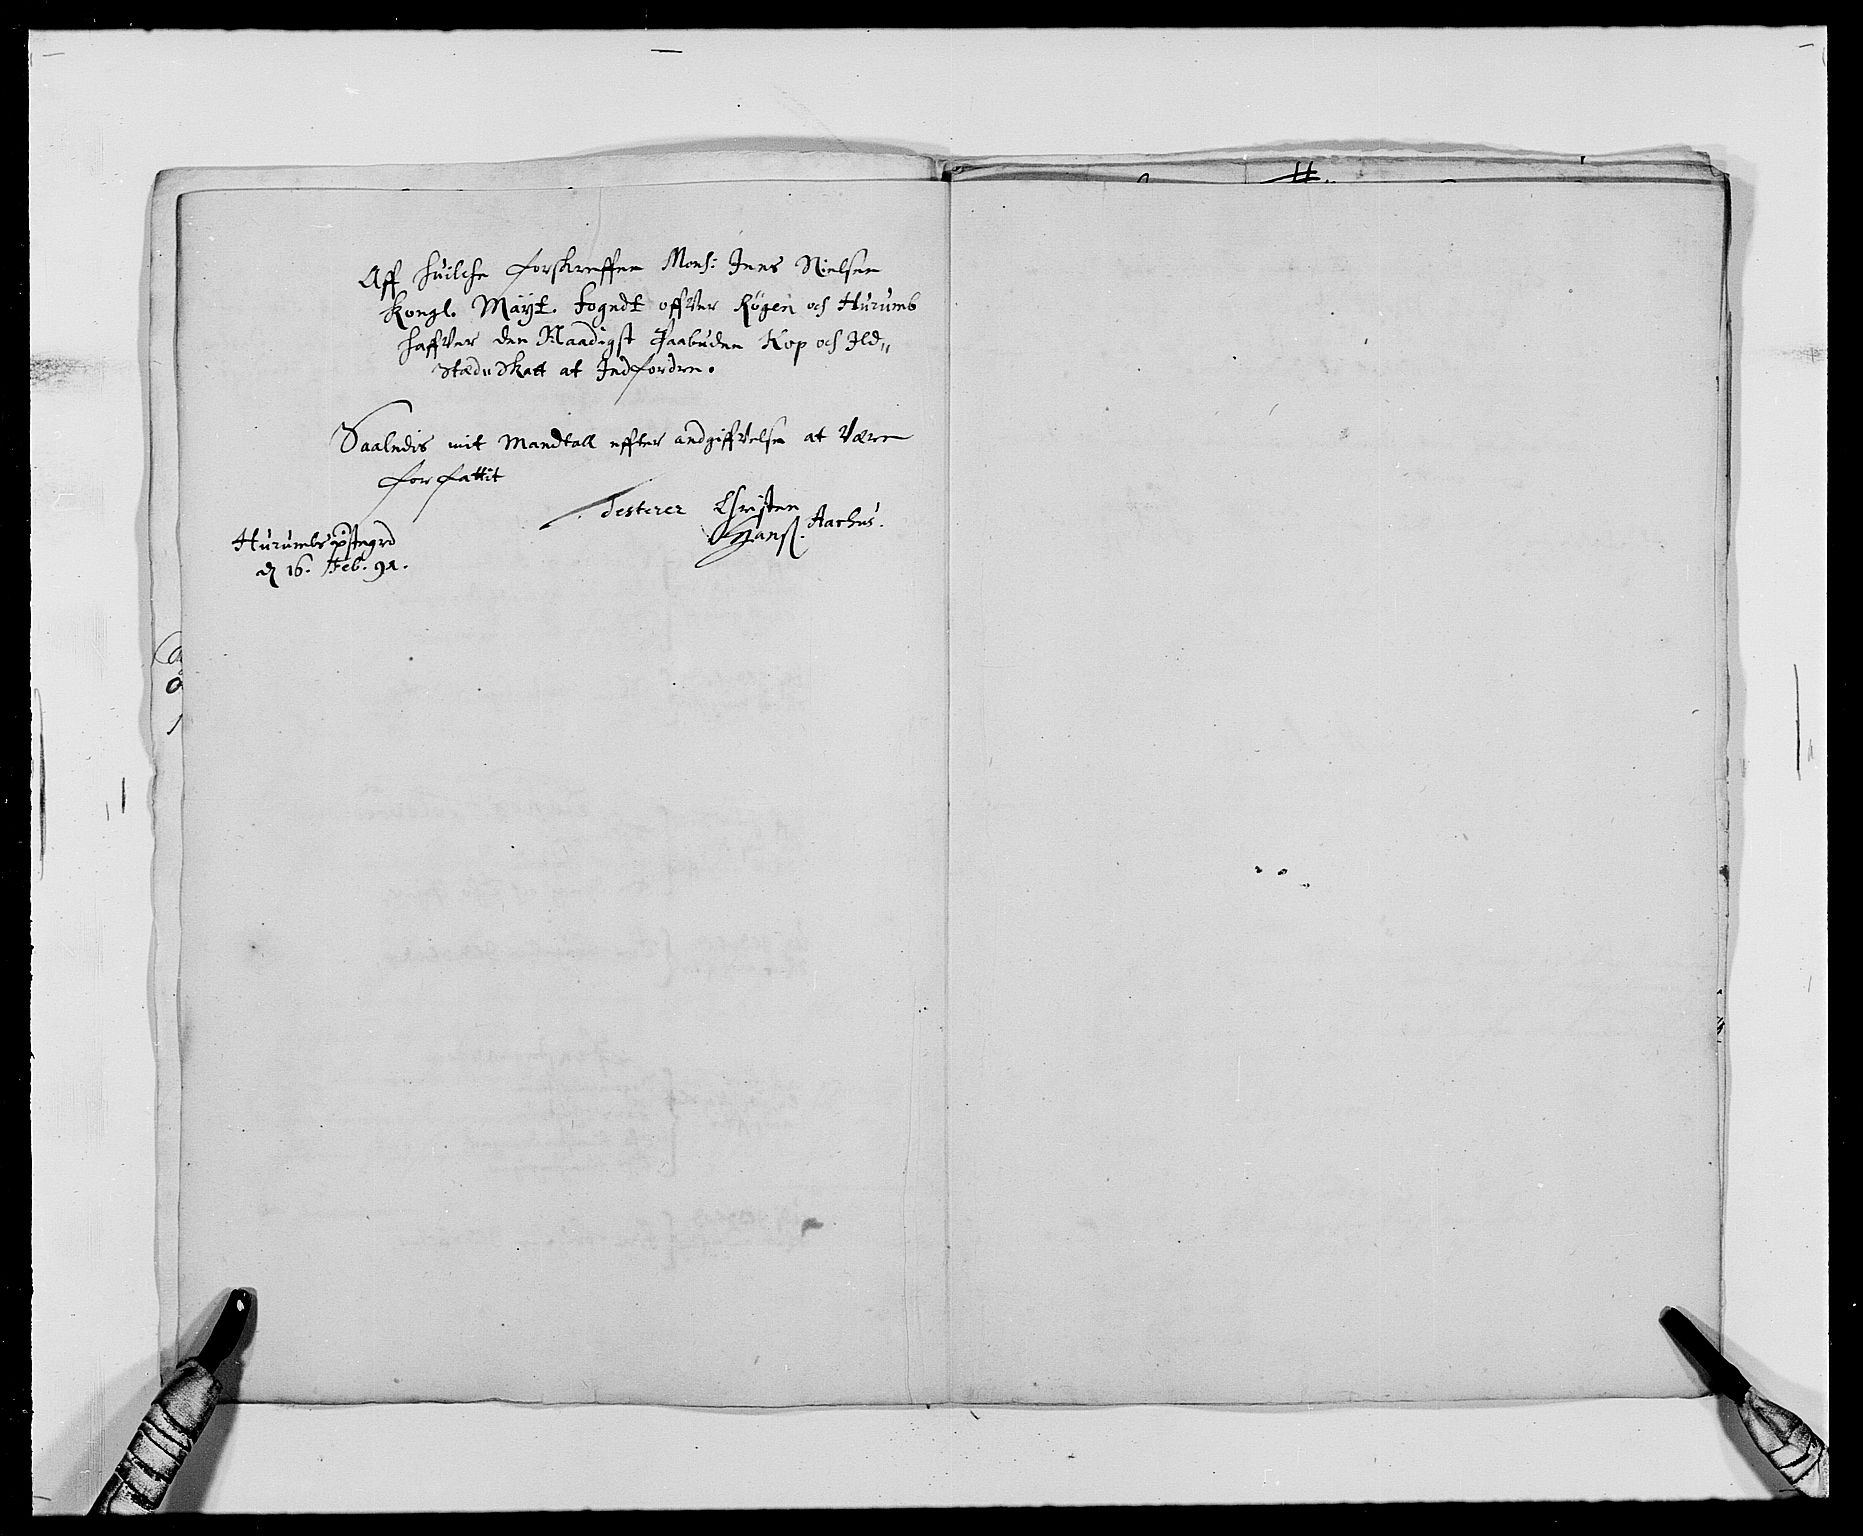 Aff huilche forskreffne Mons: Jens Nielsen
Kongl. Mayt. fogedt offver Røgen och Hurumb
haffver den Naadigst Paabudne Kop och Ild„
stæde Skatt at Indfordre.
Saaledis mit Mandtall effter andgiffvelse at Være
forfattit
Testerer Christen
Hanß. Aarhus.
Hurumbs præstegrd
d 16. Feb. 91.